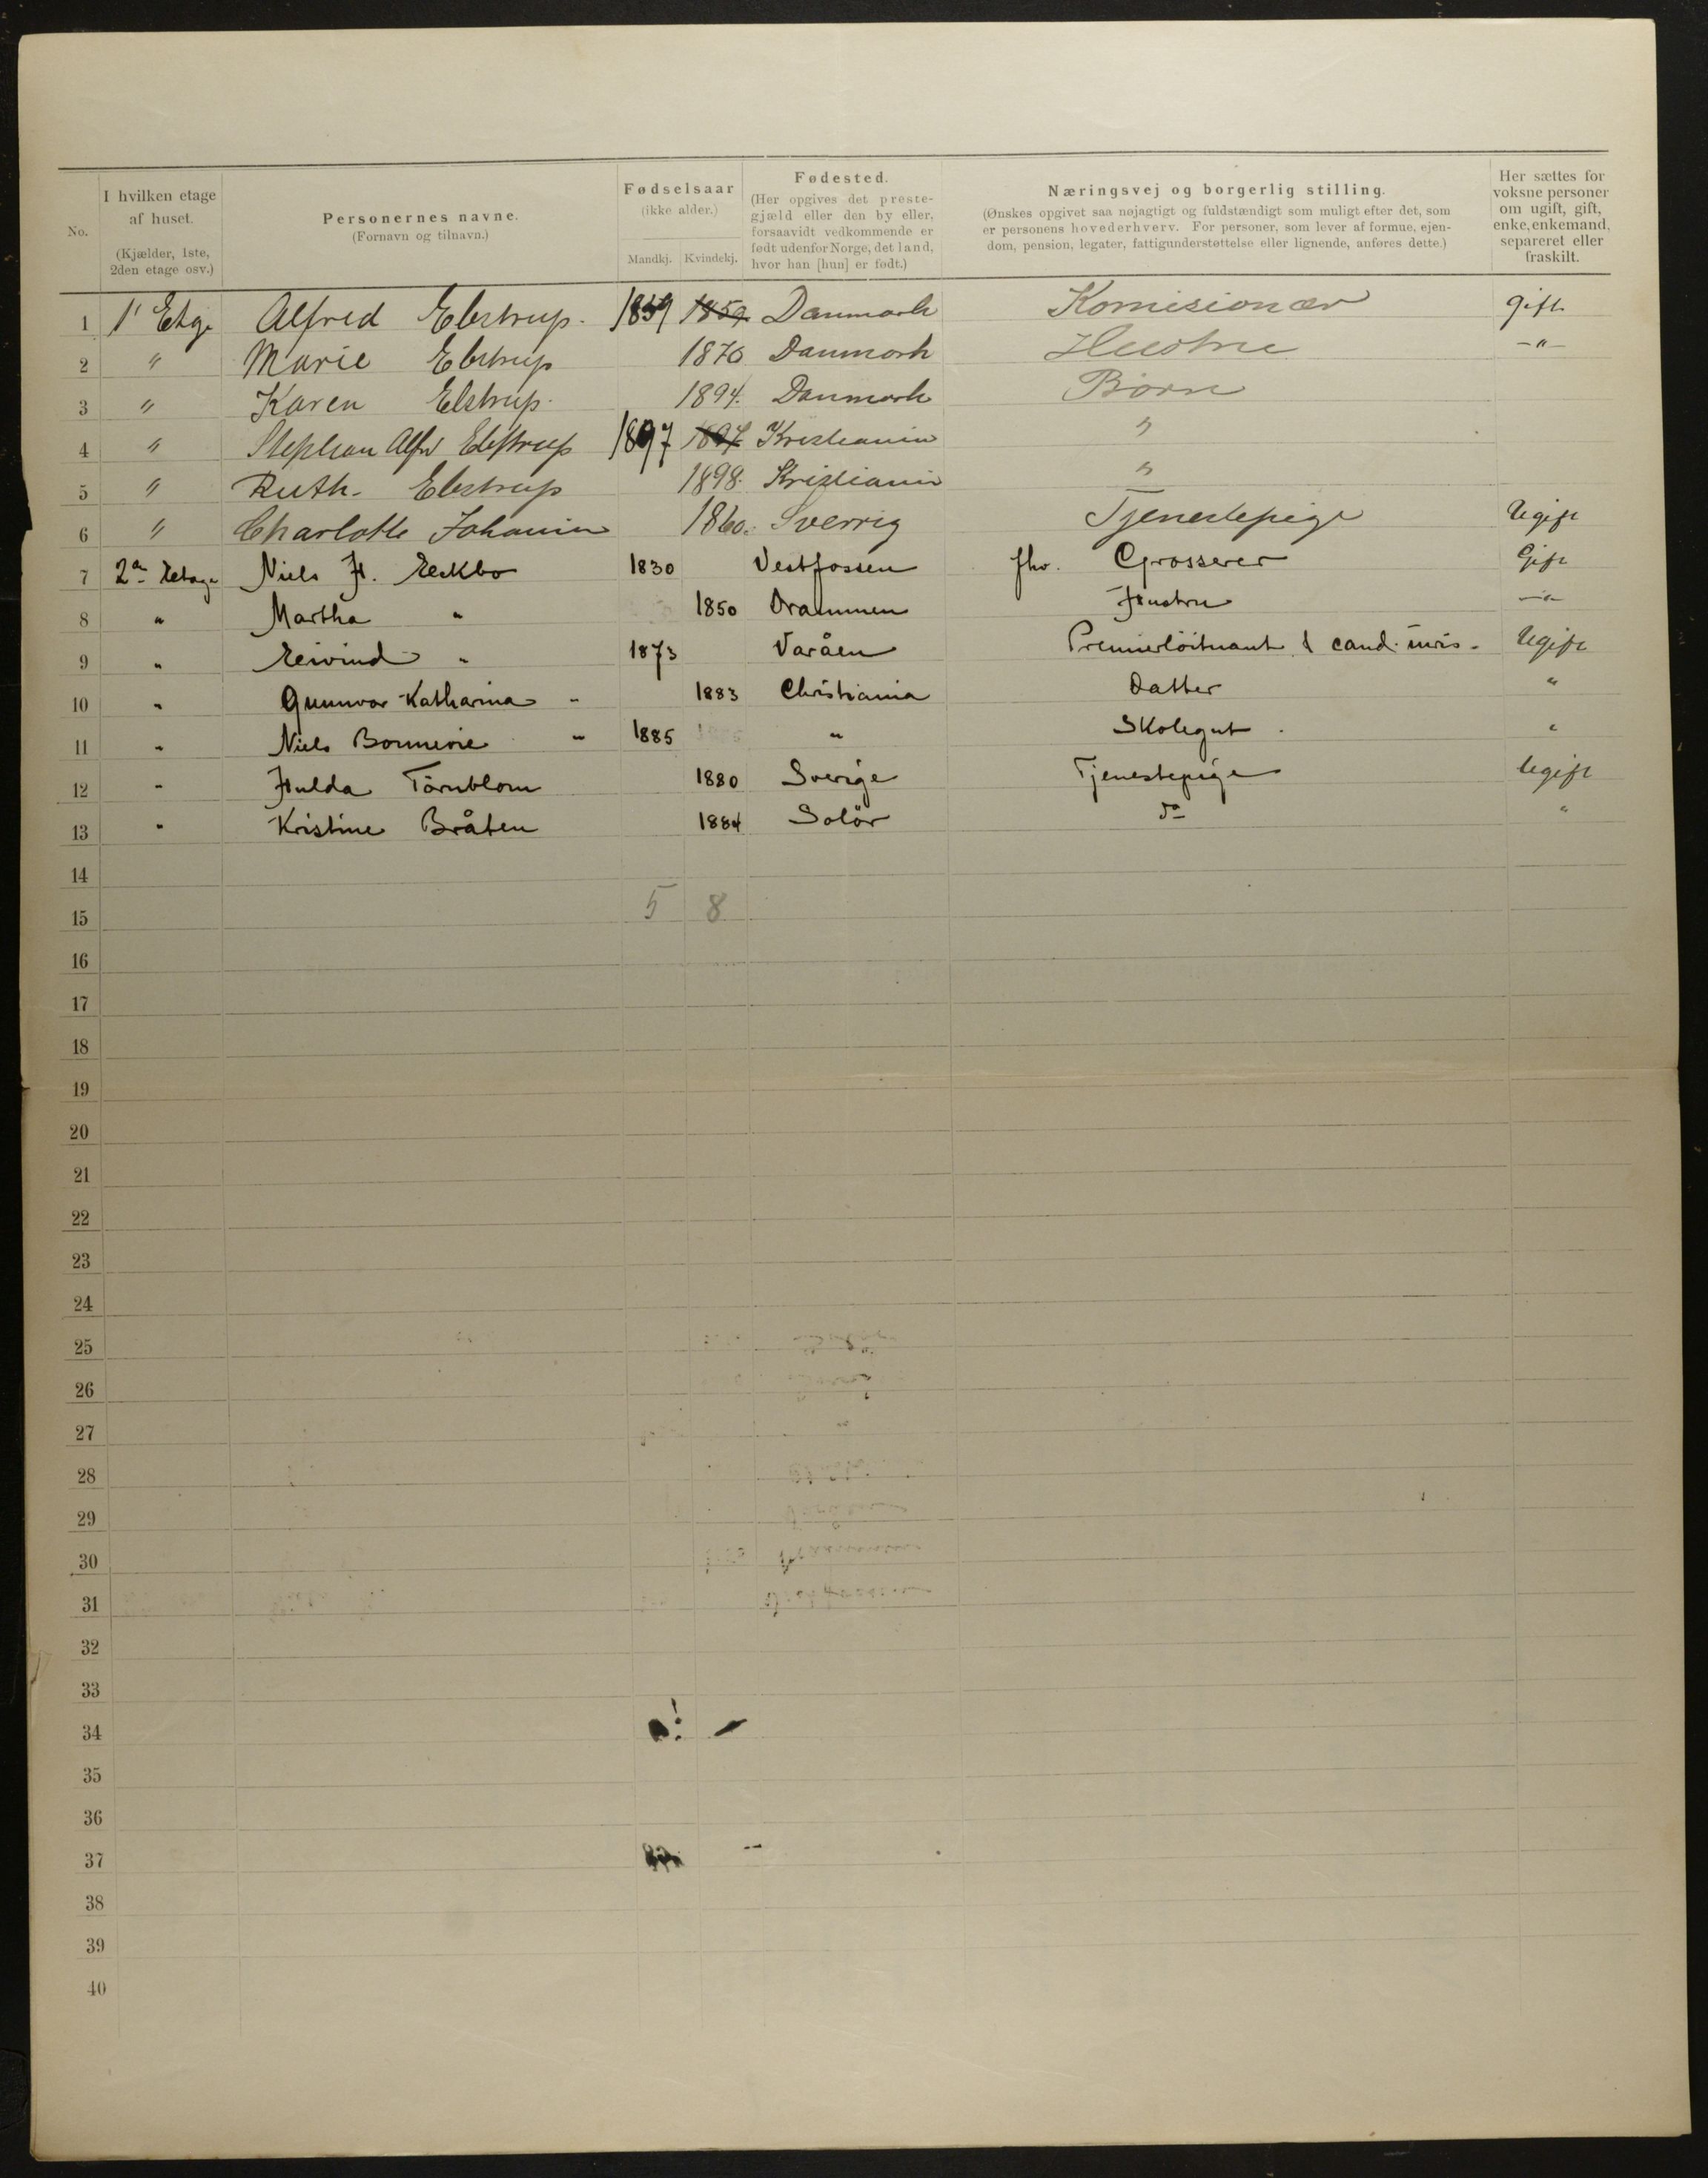 No.
I hvilken etage af huset.
(Kjælder, 1ste, 2den etage osv.)
Personernes navne.
(Fornavn og tilnavn.)
Fødselsaar
(ikke alder.)
Mandkj. Kvindekj.
Fødested.
(Her opgives det prestegjæld eller den by eller, forsaavidt vedkommende er født udenfor Norge, det land, hvor han [hun] er født.)
Næringsvej og borgerlig stilling.
(Ønskes opgivet saa nøjagtigt og fuldstændigt som muligt efter det, som er personens hovederhverv. For personer, som lever af formue, ejendom, pension, legater, fattigunderstøttelse eller lignende, anføres dette.)
Her sættes for voksne personer om ugift, gift, enke, enkemand, separeret eller fraskilt.
1 1' Etg. Alfred Ebstrup. 1859 1859 Danmark Komisionær gift
2 " Marie Ebstrup 1870 Danmark Hustru -"-
3 " Karen Ebstrup. 1894. Danmark Børn
4 " Stephan Alfr Ebstrup 1897 1897 Kristiania "
5 " Ruth. Ebstrup 1898. Kristiania "
6 " Charlotte 1860. Sverrig Tjenestepige Ugift
7 2den Etage Niels H. Eeckbo 1830 Vestfossen fhv. Grosserer Gift
8 " Martha " 1850 Drammen Hustru -"-
9 " Eivind " 1873 Varåen Premierløitnant & cand. iuris. Ugift
10 " Gunnvor Katharina " 1883 Christiania Datter "
11 " Niels Bonnevie " 1885 " Skolegut. "
12 " Hulda Törnblom 1880 Sverige Tjenestepige Ugift
13 " Kristine Bråten 1884 Solör do "
14
15 5 8
16
17
18
19
20
21
22
23
24
25
26
27
28
29
30
31
32
33
34
35
36
37
38
39
40